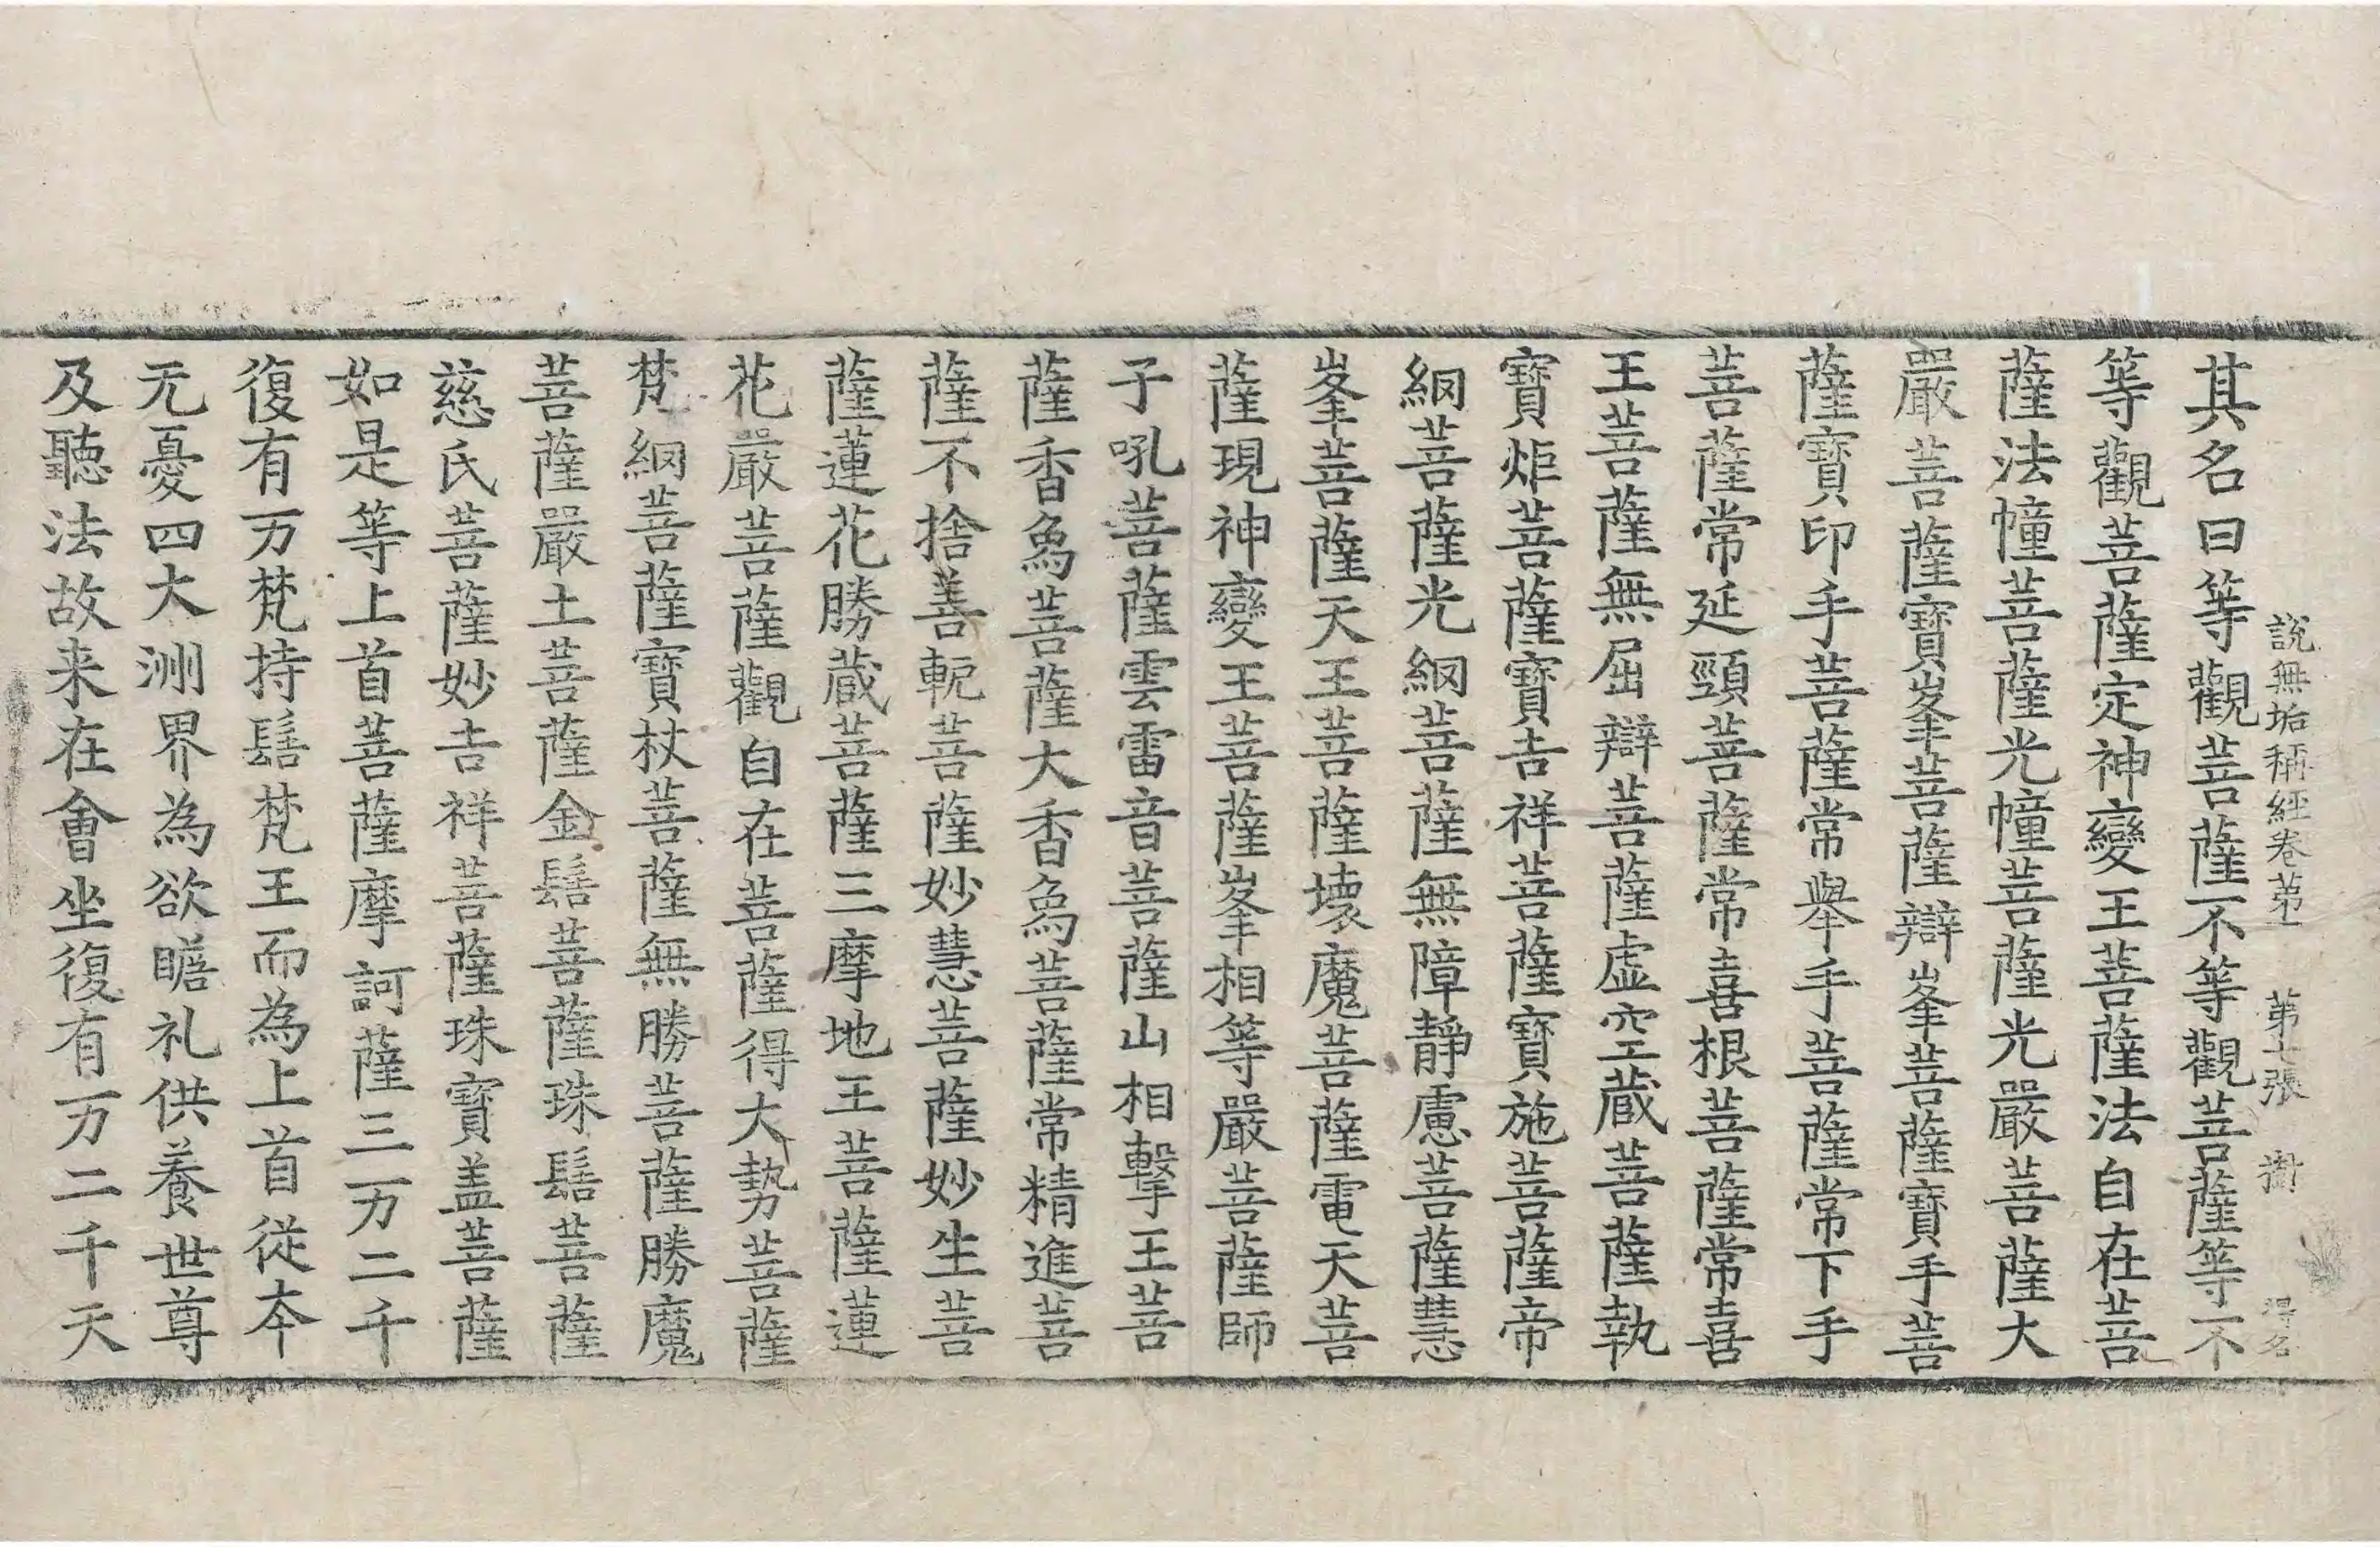 說無垢稱經卷第一 第七張 衡 得名
其名曰等觀菩薩不等觀菩薩等不
等觀菩薩定神變王菩薩法自在菩
薩法幢菩薩光幢菩薩光嚴菩薩大
嚴菩薩寶峯菩薩辯峯菩薩寶手菩
薩寶印手菩薩常舉手菩薩常下手
菩薩常延頸菩薩常喜根菩薩常喜
王菩薩無屈辯菩薩虛空蔵菩薩執
寶炬菩薩寶吉祥菩薩寶施菩薩帝
網菩薩光網菩薩無障靜慮菩薩慧
峯菩薩天王菩薩壞魔菩薩電天菩
薩現神變王菩薩峯相等嚴菩薩師
子吼菩薩雲雷音菩薩山相擊王菩
薩香為菩薩大香為菩薩常精進菩
薩不捨善軛菩薩妙慧菩薩妙生菩
薩蓮花勝蔵菩薩三摩地王菩薩蓮
花嚴菩薩觀自在菩薩得大勢菩薩
梵網菩薩寶杖菩薩無勝菩薩勝魔
菩薩嚴土菩薩金髻菩薩珠髻菩薩
慈氏菩薩妙吉祥菩薩珠寶盖菩薩
如是等上首菩薩摩訶薩三万二千
復有万梵持髻梵王而為上首從夲
无憂四大洲界為欲瞻礼供養世尊
及聽法故来在會坐復有万二千天